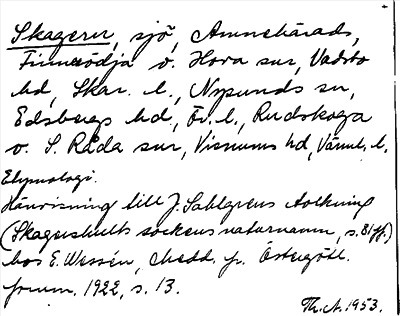 Skagern, sjö, Amnehärads,
Finnerödja o. Hova snr, Vadsbo
hd, Skar. l., Nysunds sn,
Edsbergs hd, Ör. l., Rudskoga
o. S. Råda snr, Visnums hd, Värml. l.
Etymologi.
Hänvisning till J. Sahlgrens tolkning
(Skagershults sockens naturnamn, s. 81 ff.)
hos E. Wessén, Medd. fr. Östergötl.
fornm. 1922, s. 13.
Th. A. 1953.